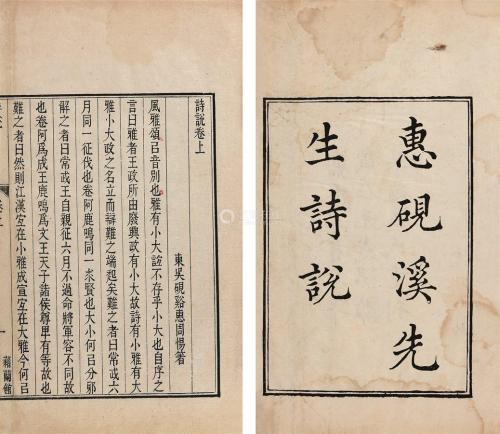 惠硯溪先
生詩説
詩說卷上
東吳硯谿惠周惕著
風雅頌㠯音別也雅有小大誼不存乎小大也自序之
言曰雅者王政所由廢興政有小大故詩有小雅有大
雅小大政之名立而辯難之端起矣難之者曰常或六
月同一征伐也卷阿鹿鳴同一求賢也大小何㠯分邪
解之者曰常或王自親征六月不過命將軍容不同故
也卷阿爲成王鹿鳴爲文王天子諸侯尊卑有等故也
難之者曰然則江漢宜在小雅成宣宜在大雅今何㠯
一
蕱蘭館